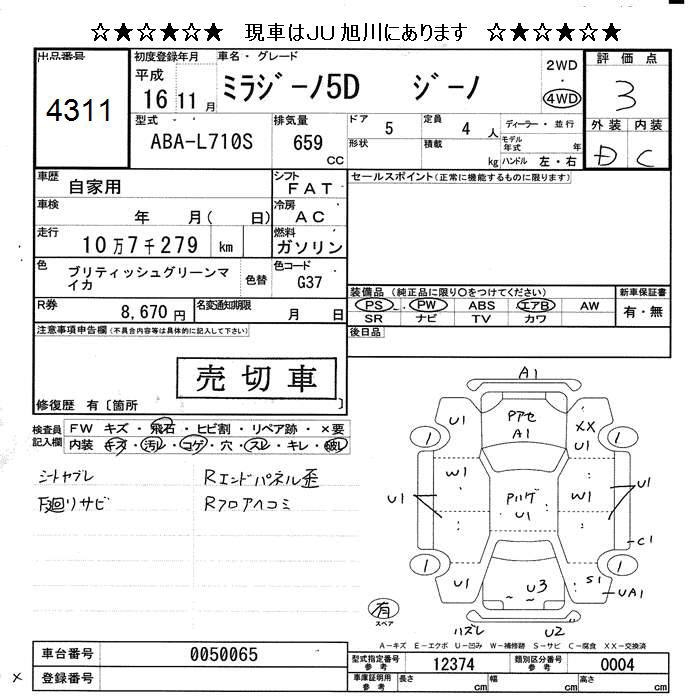 ☆★☆★☆★ 現車はJU旭川にあります ☆★☆★☆★
出品番号 初度登録年月 車名・グレード 評価点
4311 平成 16 11月 ミラジーノ5D ジーノ 2WD・4WD 3
型式 ABA-L710S 排気量 659 CC ドア 5 定員 4 人 ディーラー・並行 外装 内装
形状 積載 kg モデル年式 年 ハンドル 左・右 D C
車歴 自家用 シフト FAT セールスポイント(正常に機能するものに限ります)
車検 年 月( 日) 冷房 AC
走行 10万7千279 km 燃料 ガソリン
色 ブリティッシュグリーンマイカ 色替 色コード G37
装備品(純正品に限り〇をつけてください) 新車保証書
R券 8,670円 名変通知期限 月 日 PS PW ABS エアB AW 有・無
SR ナビ TV カワ
注意事項申告欄(不具合内容等は具体的に記入して下さい) 後日品
売切車
修復歴 有〔箇所 〕
検査員記入欄 FW キズ・飛石・ヒビ割・リペア跡・×要
内装 キズ・汚レ・コゲ・穴・スレ・キレ・破レ
シートヤブレ Rエンドパネル歪
下廻りサビ Rフロアヘコミ
A1
U1 Pアセ A1 XX U1
1 1
W1 Pハゲ U1 W1
U1 U1
C1
1 1
U1 U3 S1 UA1
有 スペア ハズレ U2
A-キズ E-エクボ U-凹み W-補修跡 S-サビ C-腐食 XX-交換済
車台番号 0050065 型式指定番号 参考 12374 類別区分番号 参考 0004
× 登録番号 車庫証明用 参考 長さ cm 幅 cm 高さ cm